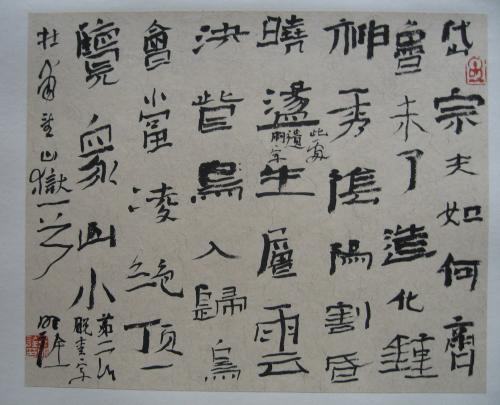 岱宗夫如何齊
魯未了造化鍾
神秀陰陽割昏
曉盪生層雲
此處
遺胸字
決眥鳥入歸鳥
會當凌絕頂一
覽眾山小
第二行
脫青字
杜甫望山嶽一首